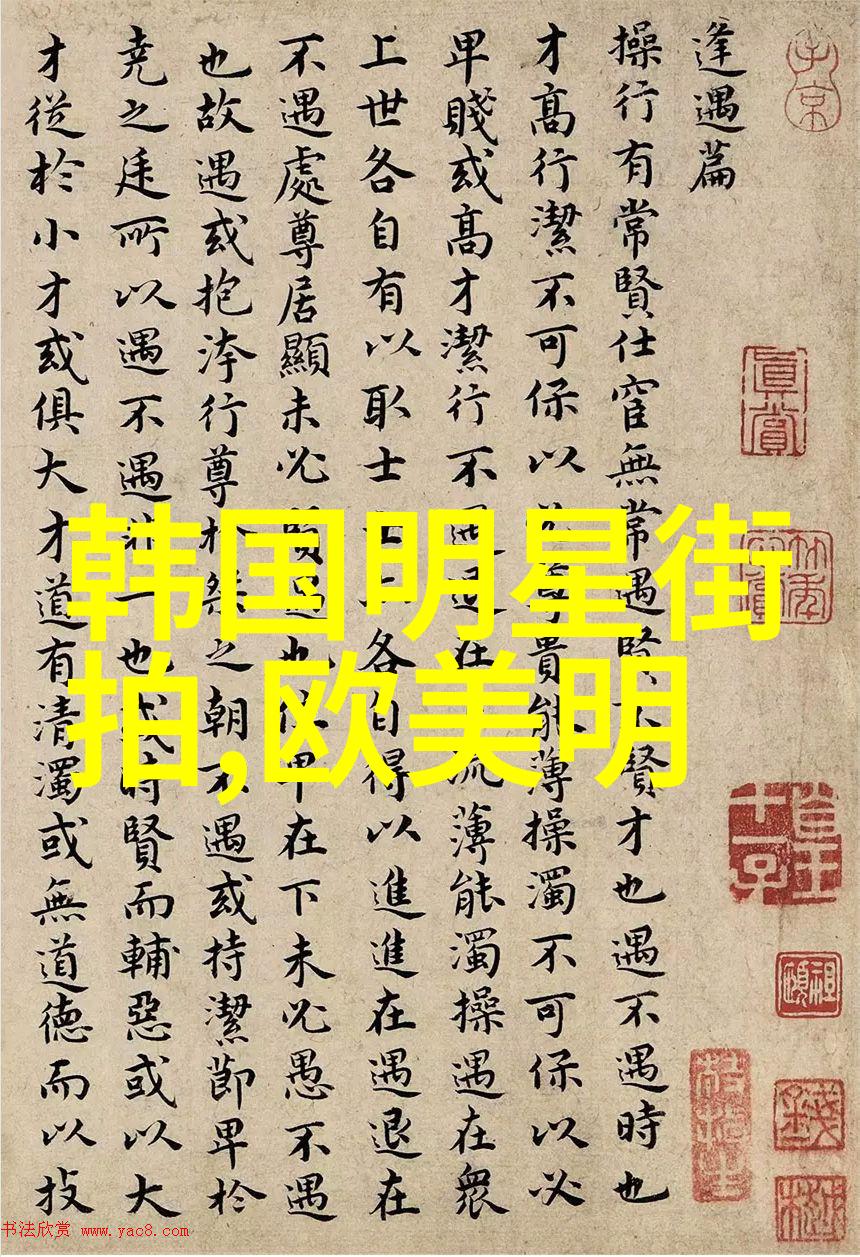 逢遇篇
操行有常賢仕宦無常遇賢不賢才也遇不遇時也
才高行潔不可保以必尊貴能薄操濁不可保以必
卑賤或高才潔行不遇退在流薄能濁操遇在衆
上世各自有以取士士各自得以進進在遇退在
不遇處尊居顯未必賢遇也位卑在下未必愚不遇
也故遇或抱洿行尊於桀之朝不遇或持潔節卑於
堯之廷所以遇不遇非一也或時賢而輔惡或以大
才從於小才或俱大才道有清濁或無道德而以技
韩国明星街
拍,欧美明
子京
真賞
书法欣赏 www.yac8.com